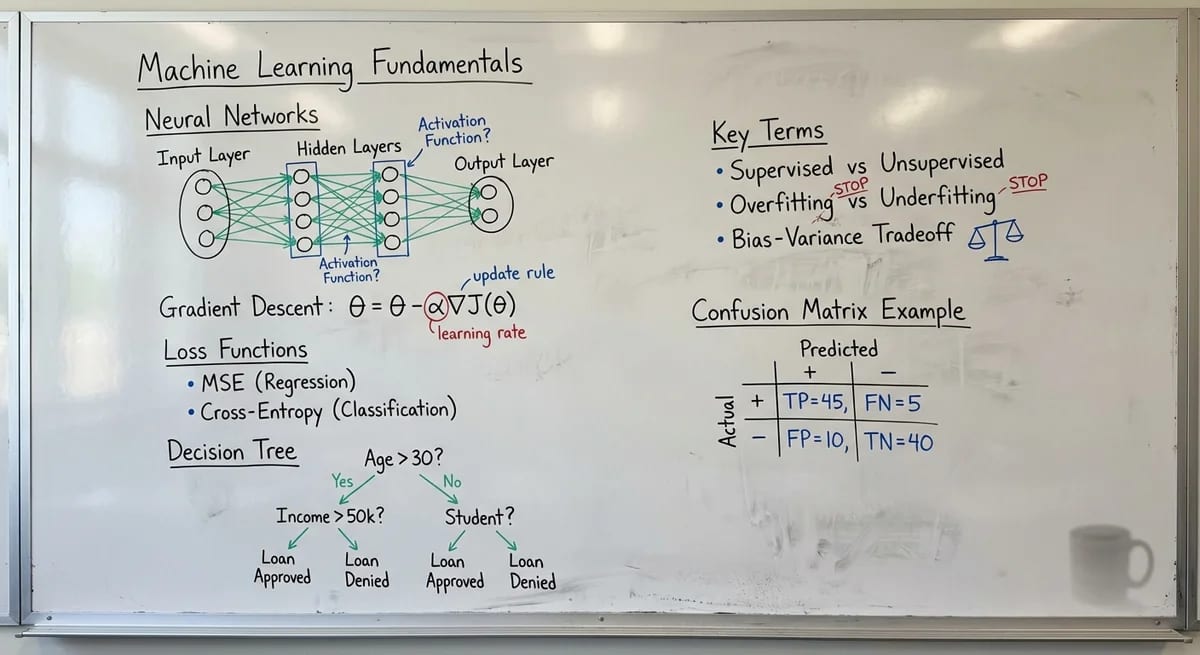 Machine Learning Fundamentals
Neural Networks
Input Layer
Hidden Layers
Activation
Function?
Output Layer
Activation
Function?
update rule
Gradient Descent: θ = θ - α∇J(θ)
learning rate
Loss Functions
• MSE (Regression)
• Cross-Entropy (Classification)
Decision Tree
Age > 30?
Yes No
Income > 50k? Student?
Loan Loan Loan Loan
Approved Denied Approved Denied
Key Terms
• Supervised vs Unsupervised
STOP STOP
• Overfitting vs Underfitting
• Bias-Variance Tradeoff
Confusion Matrix Example
Predicted
+ −
Actual
+ TP=45, FN=5
− FP=10, TN=40